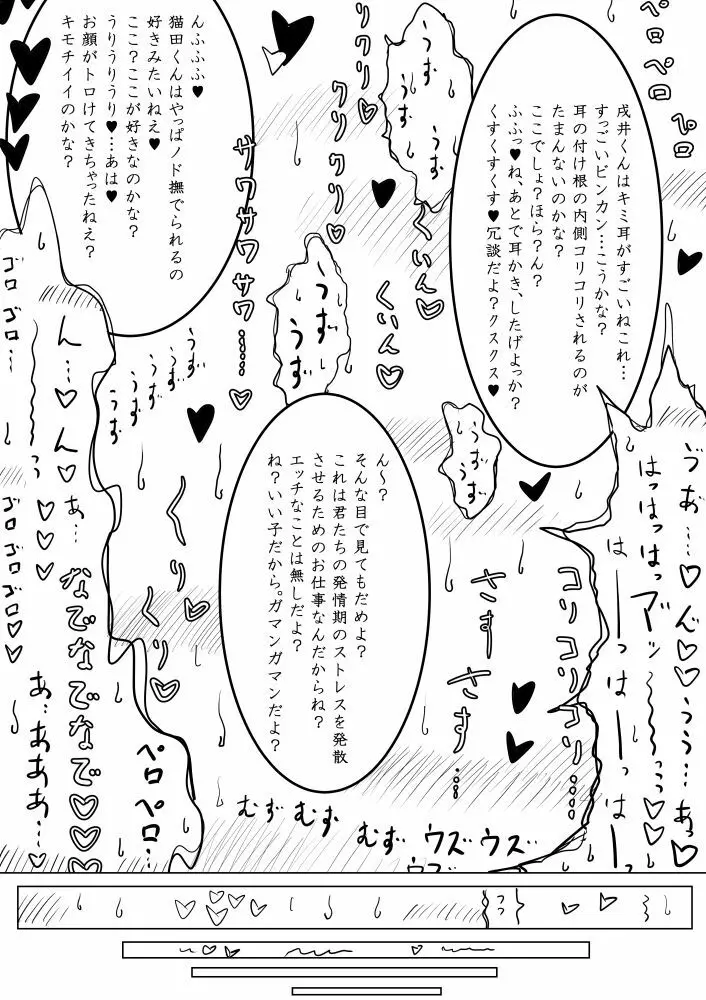 戌井くんはキミ耳がすごいねこれ…
すっごいビンカン…こうかな？
耳の付け根の内側コリコリされるのが
たまんないのかな？
ここでしょ？ほら？ん？
ふふっ♥ね、あとで耳かき、したげよっか？
くすくすくす♥冗談だよ？クスクス♥
んふふふ♥
猫田くんはやっぱノド撫でられるの
好きみたいねえ♥
ここ？ここが好きなのかな？
うりうりうり♥…あは♥
お顔がトロけてきちゃったねえ？
キモチイイのかな？
ん～？
そんな目で見てもだめよ？
これは君たちの発情期のストレスを発散
させるためのお仕事なんだからね？
エッチなことは無しだよ？
ね？いい子だから。ガマンガマンだよ？
ペロペロ
ペロ
うず
うず
くいん♡
くいん♡
クリクリ♡
クリクリ♡
サワサワサワサワ……♡
うず
うず
うず
うず
うず
うず
うず
うず
ゴロ
ゴロゴロ…
ん…♡ん♡
あ…
ゴロゴロゴロゴロ♡♡
くりくり♡♡
なでなでなでなで♡♡♡
あ…あああ…
ペロペロ…
はっはっはっ
はーっはーっはー
ん♡♡うぅ…あっ♡
コリコリコリコリ……
さすさす
さす……
むずむず
むず
ウズウズ
ウズ
っっ